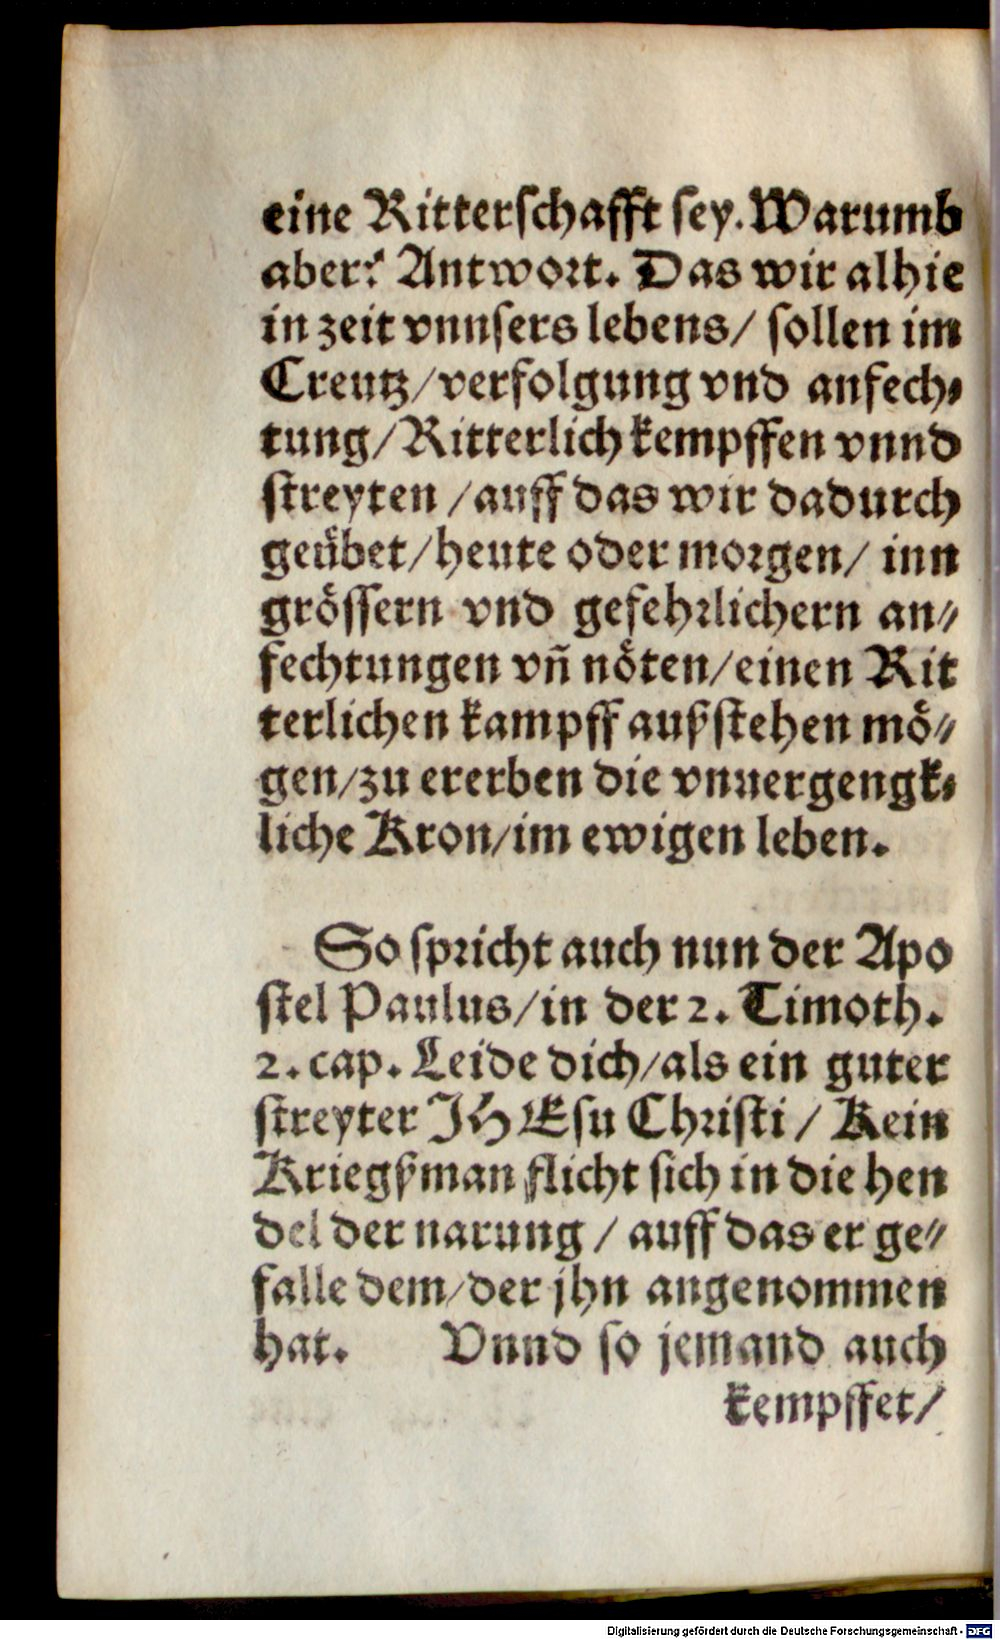 eine Ritterschafft sey. Warumb
aber? Antwort. Das wir alhie
in zeit vnnsers lebens/ sollen im
Creutz/verfolgung vnd anfech⸗
tung/Ritterlich kempffen vnnd
streyten /auff das wir dadurch
geübet/heute oder morgen/ inn
grössern vnd gefehrlichern an⸗
fechtungen vñ nöten/einen Rit
terlichen kampff außstehen mö⸗
gen/zu ererben die vnuergengk⸗
liche Kron/im ewigen leben.
So spricht auch nun der Apo
stel Paulus/in der 2. Timoth.
2. cap. Leide dich/als ein guter
streyter JHEsu Christi / Kein
Kriegßman flicht sich in die hen
del der narung / auff das er ge⸗
falle dem/der jhn angenommen
hat. Vnnd so jemand auch
kempffet/
Digitalisierung gefördert durch die Deutsche Forschungsgemeinschaft - DFG